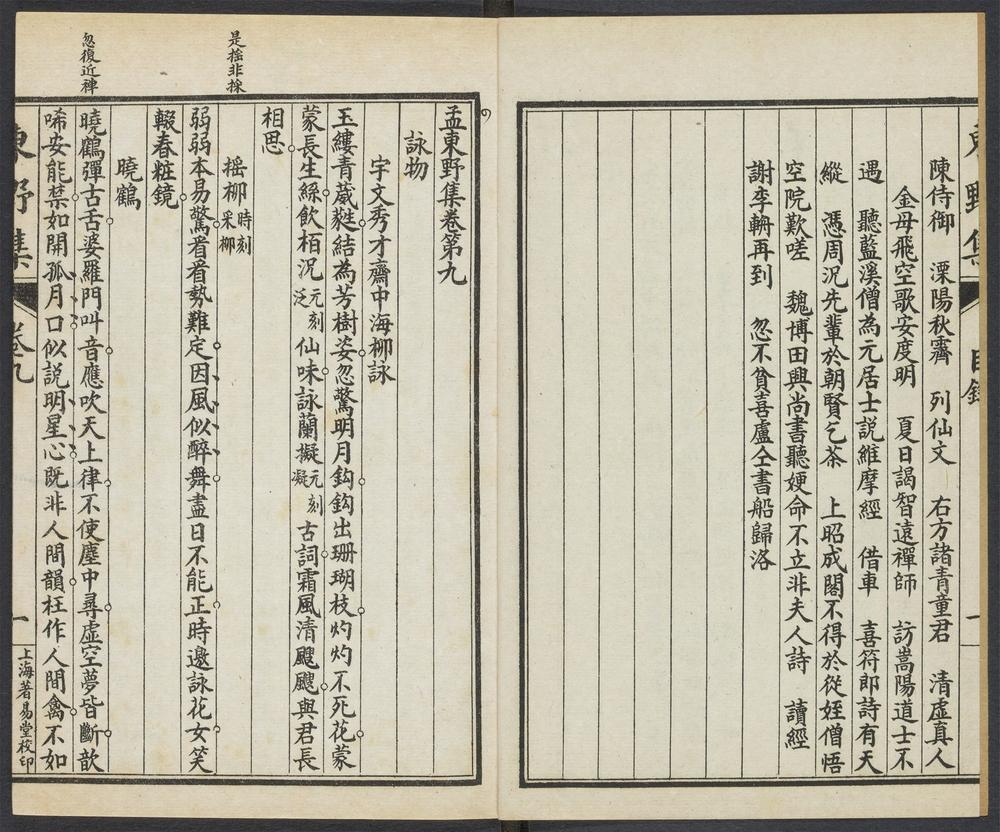 東野集 目錄 一
陳侍御　溧陽秋霽　列仙文　右方諸青童君　清虛真人
金母飛空歌安度明　夏日謁智遠禪師　訪嵩陽道士不
遇　聽藍溪僧為元居士説維摩經　借車　喜符郎詩有天
縱　憑周況先輩於朝賢乞茶　上昭成閣不得於從姪僧悟
空院歎嗟　魏博田興尚書聽娌命不立非夫人詩　讀經
謝李輈再到　忽不貧喜盧仝書船歸洛
孟東野集卷第九
詠物
宇文秀才齋中海柳詠
玉縷青葳蕤結為芳樹姿忽驚明月鈎鈎出珊瑚枝灼灼不死花蒙
蒙長生絲飲栢況元刻泛仙味詠蘭擬元刻凝古詞霜風清飀飀與君長
相思
搖柳時刻采柳
是搖非採
弱弱本易驚看看勢難定因風似醉舞盡日不能正時邀詠花女笑
輟春粧鏡
曉鶴
忽復近禪
曉鶴彈古舌婆羅門叫音應吹天上律不使塵中尋虛空夢皆斷歆
唏安能禁如開孤月口似説明星心既非人間韻枉作人間禽不如
東野集 卷九 一 上海著易堂校印